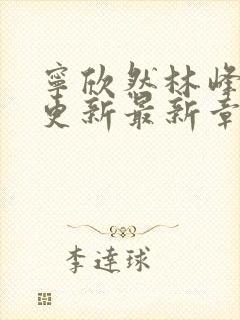 寧欣然林峰
更新最新章
李達球